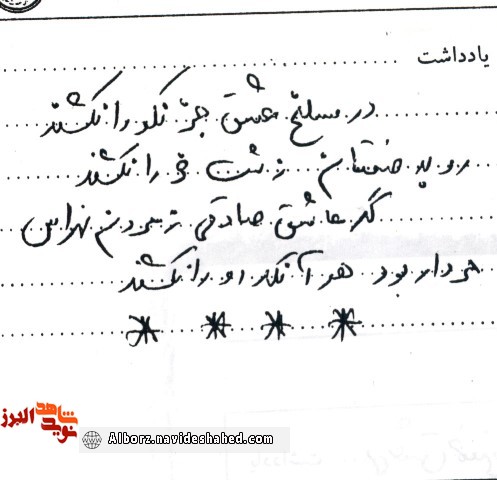 یادداشت
در مسلخ عشق جز نکو را نکشند
روبه صفتان زشت خو را نکشند
گر عاشق صادقی ز مردن نهراس
مردار بود هر آنکه او را نکشند
شاهد
نوید
البرز
Alborz.navideshahed.com